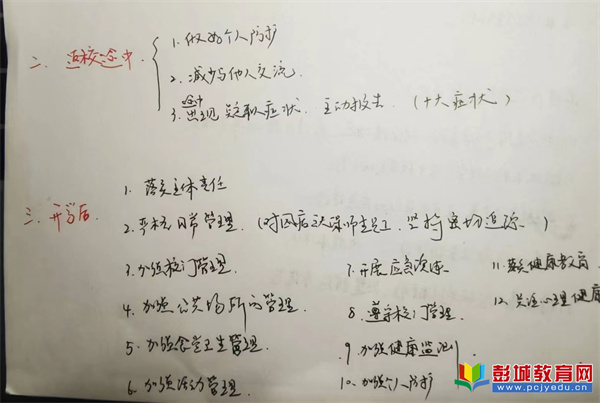 二、返校途中
1.做好个人防护
2.减少与他人交流.
途中
3.出现疑似症状、主动报告.(十大症状)
三、开学后
1.落实主体责任
2.严格日常管理.(对因病缺课师生员工、坚持密切追踪.)
3.加强校门管理.
4.加强公共场所的管理
5.加强食堂卫生管理.
6.加强活动管理.
7.开展应急演练.
8.遵守校门管理.
9.加强健康监测
10.加强个人防护
11.健康教育
12.关注心理健康
彭城教育网
www.pcjyedu.cn